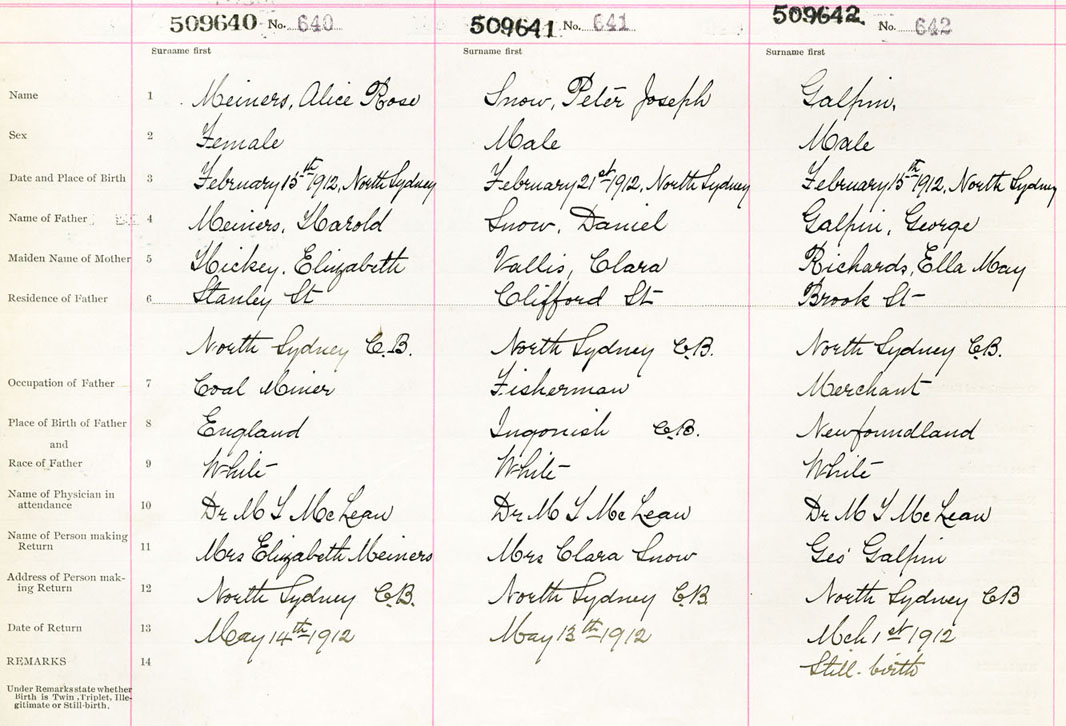 509640 No. 640 509641 No. 641 509642 No. 642
Surname first Surname first Surname first
Name 1 Meiners, Alice Rose Snow, Peter Joseph Galpin,
Sex 2 Female Male Male
Date and Place of Birth 3 February 15th 1912, North Sydney February 21st 1912, North Sydney February 15th 1912, North Sydney
Name of Father 4 Meiners, Harold Snow, Daniel Galpin, George
Maiden Name of Mother 5 Hickey, Elizabeth Vallis, Clara Richards, Ella May
Residence of Father 6 Stanley St Clifford St Brook St
North Sydney C.B. North Sydney C.B. North Sydney C.B.
Occupation of Father 7 Coal Miner Fisherman Merchant
Place of Birth of Father 8 England Ingonish C.B. Newfoundland
and
Race of Father 9 White White White
Name of Physician in
attendance 10 Dr M T McLean Dr M T McLean Dr M T McLean
Name of Person making
Return 11 Mrs Elizabeth Meiners Mrs Clara Snow Geo Galpin
Address of Person mak-
ing Return 12 North Sydney C.B. North Sydney C.B. North Sydney CB
Date of Return 13 May 14th 1912 May 13th 1912 Mch 1st 1912
REMARKS 14 Still-birth
Under Remarks state whether
Birth is Twin, Triplet, Ille-
gitimate or Still-birth.